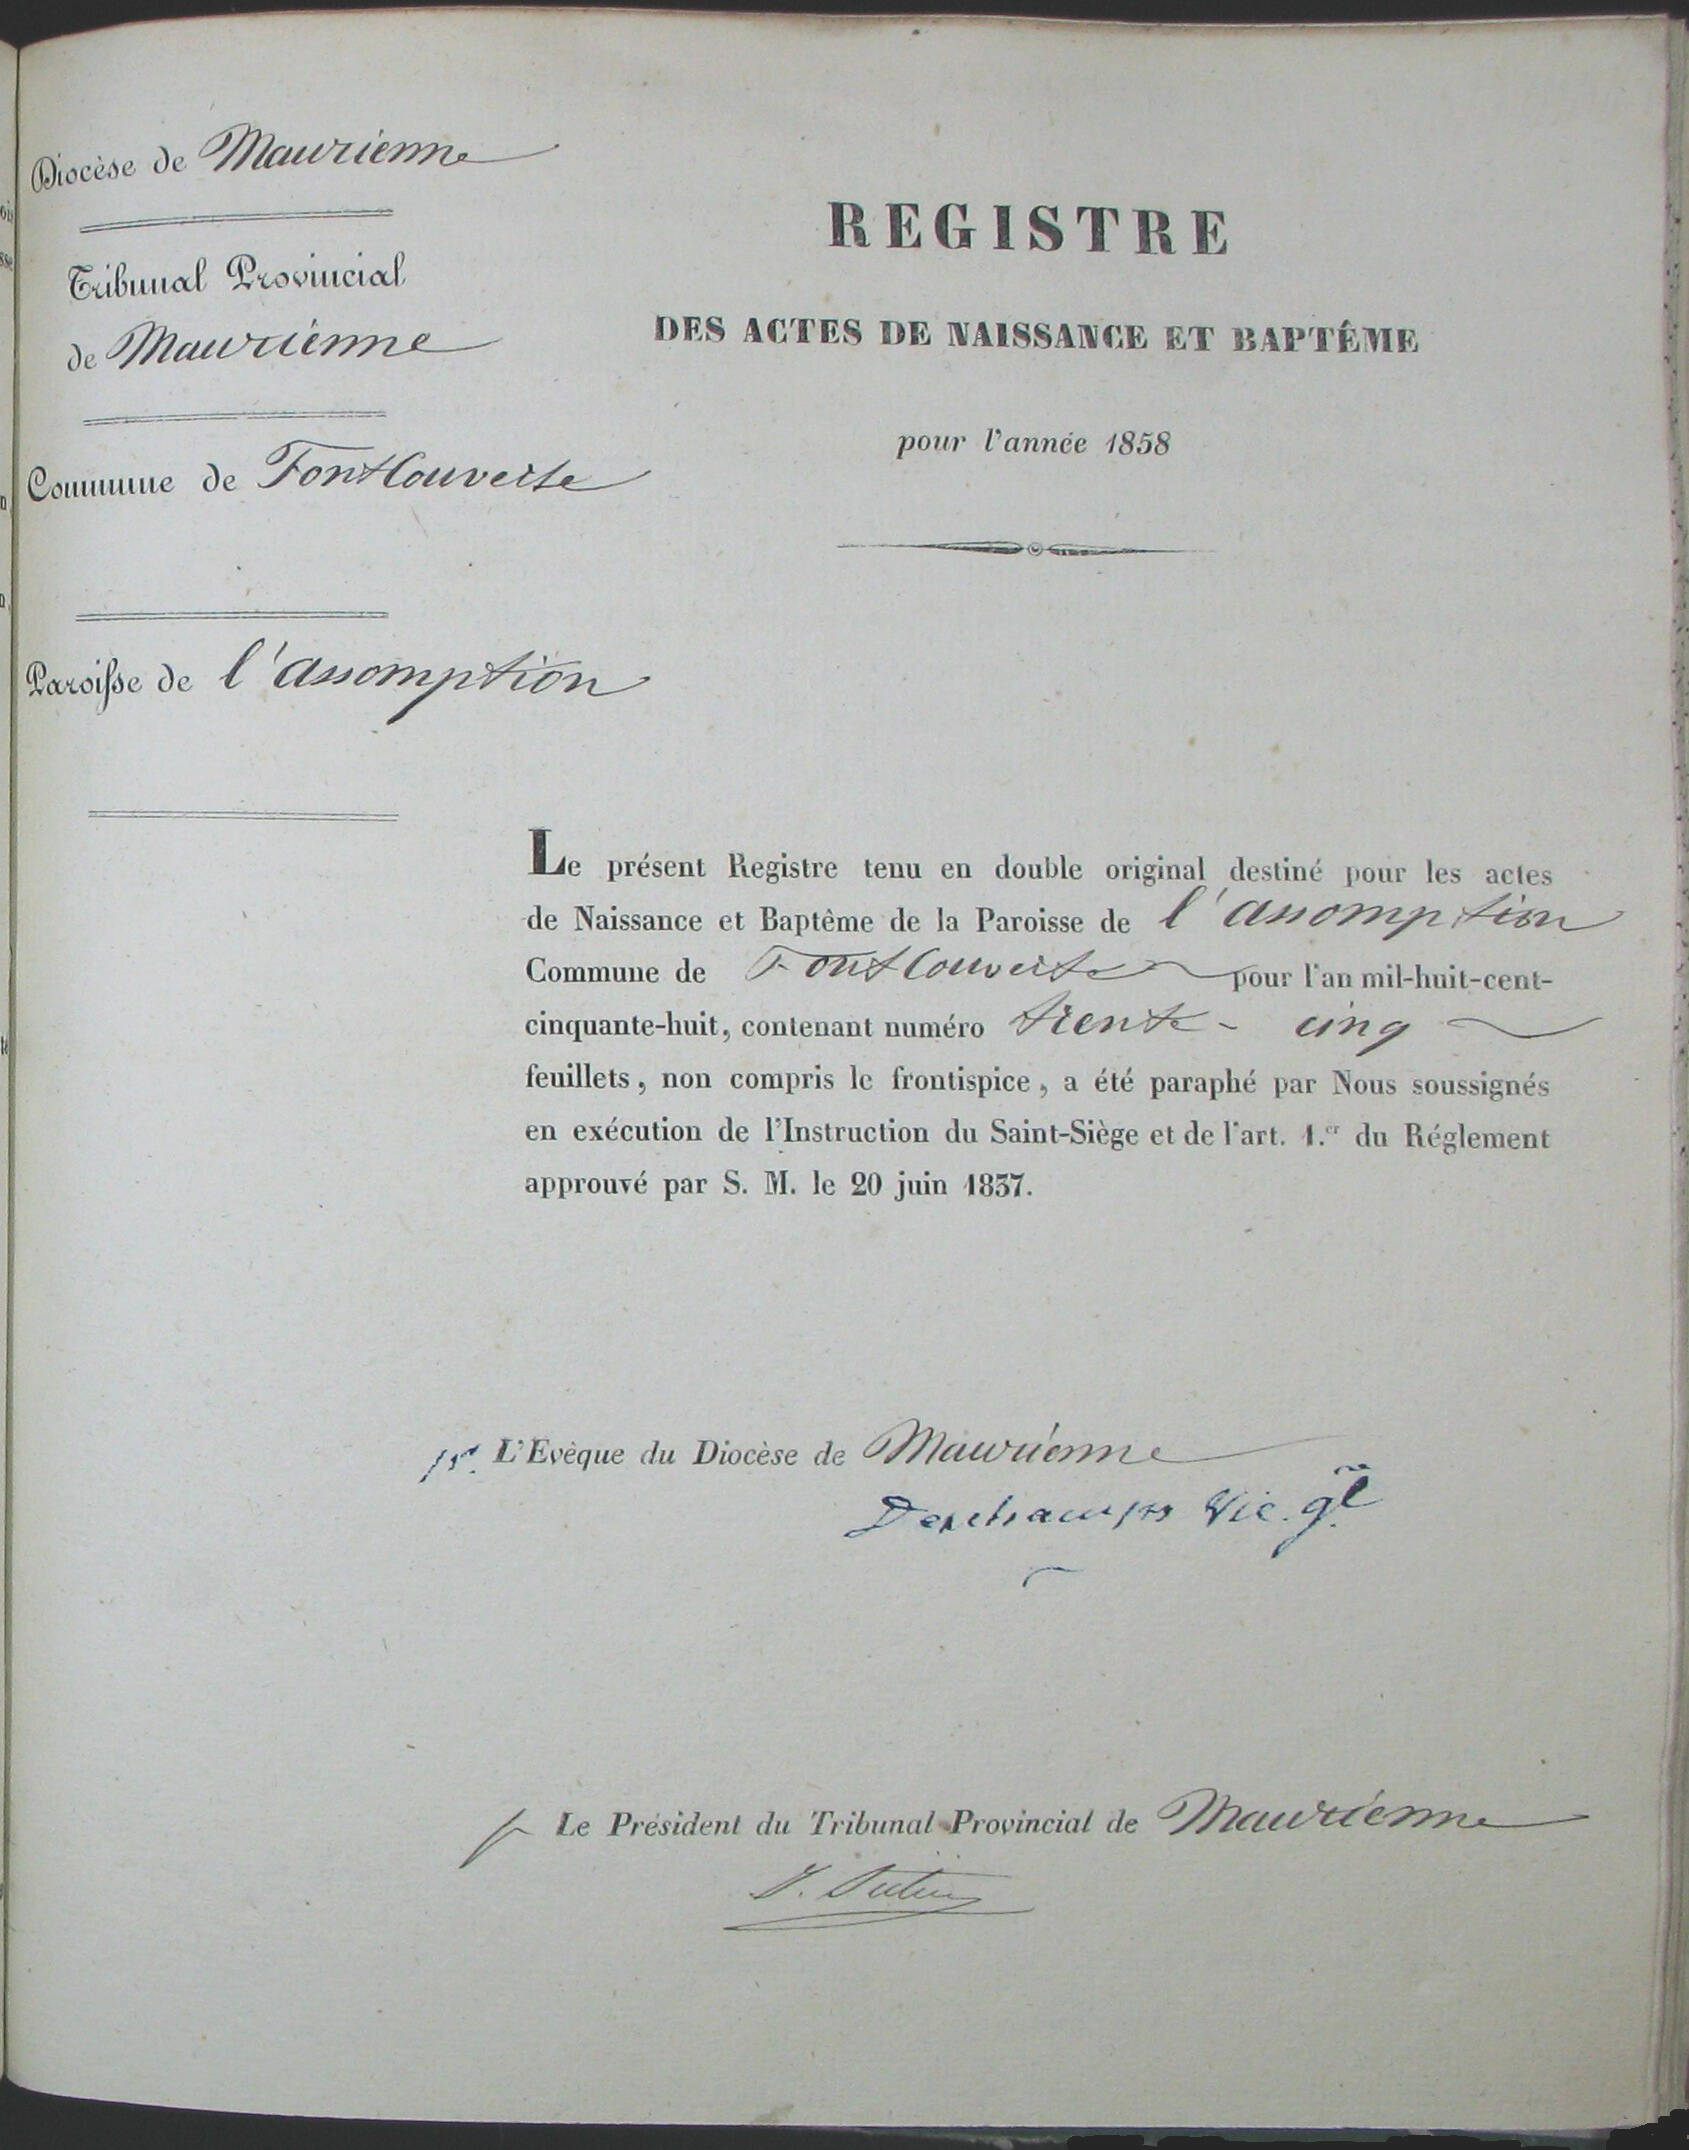 Diocèse de Maurienne
Tribunal Provincial
de Maurienne
Commune de FontCouverte
Paroisse de l'assomption
REGISTRE
DES ACTES DE NAISSANCE ET BAPTÊME
pour l'année 1858
Le présent Registre tenu en double original destiné pour les actes
de Naissance et Baptême de la Paroisse de l'assomption
Commune de FontCouverte pour l'an mil-huit-cent-
cinquante-huit, contenant numéro trente-cinq
feuillets, non compris le frontispice, a été paraphé par Nous soussignés
en exécution de l'Instruction du Saint-Siège et de l'art. 1.er du Réglement
approuvé par S. M. le 20 juin 1837.
pr. L'Evèque du Diocèse de Maurienne
Deschamps Vic. gl
Le Président du Tribunal Provincial de Maurienne